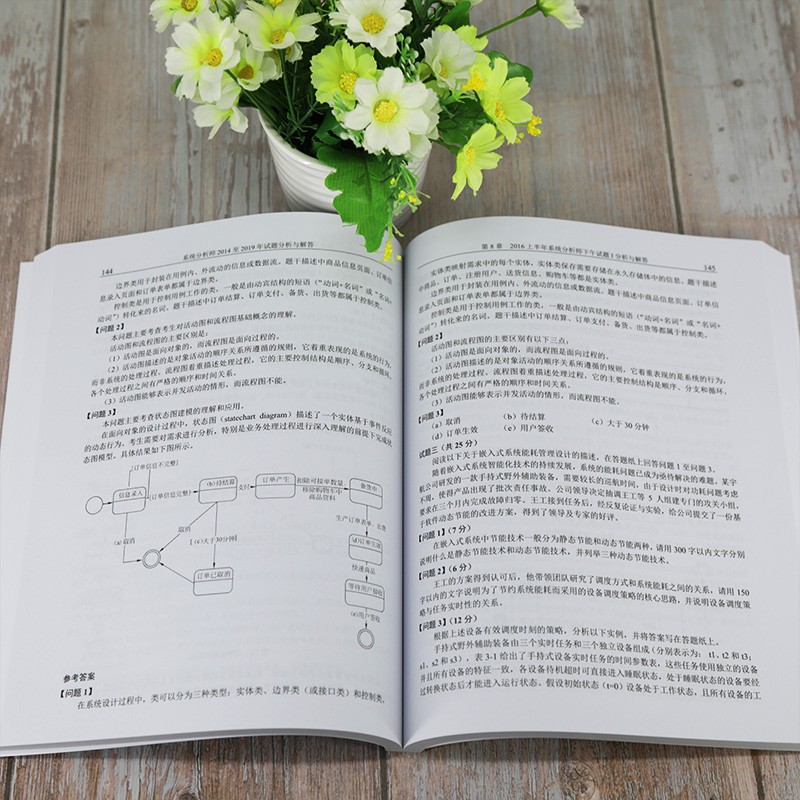 144
系统分析师 2014 至 2019 年试题分析与解答
边界类用于封装在用例内、外流动的信息或数据流。题干描述中商品信息页面、订单信
息录入页面和订单表单都属于边界类。
控制类是用于控制用例工作的类，一般是由动宾结构的短语（“动词+名词”或“名词+
动词”）转化来的名词。题干描述中订单结算、订单支付、备货、出货等都属于控制类。
【问题 2】
本问题主要考查考生对活动图和流程图基础概念的理解。
活动图和流程图的主要区别是：
（1）活动图是面向对象的，而流程图是面向过程的。
（2）活动图描述的是对象活动的顺序关系所遵循的规则，它着重表现的是系统的行为，
而非系统的处理过程。流程图着重描述处理过程，它的主要控制结构是顺序、分支和循环，
各个处理过程之间有严格的顺序和时间关系。
（3）活动图能够表示并发活动的情形，而流程图不能。
【问题 3】
本问题主要考查状态图建模的理解和应用。
在面向对象的设计过程中，状态图（statechart diagram）描述了一个实体基于事件反应
的动态行为。考生需要对需求进行分析，特别是业务处理过程进行深入理解的前提下完成状
态图模型。具体结果如下图所示。
[订单信息不完整]
信息录入
[订单信息完整]
(b)待结算
支付
订单产生
扣除可接单数量、
移除购物车中
商品资料
备货中
生产订单表单、出货
(a)取消
取消
[(c)大于30分钟]
(d)订单生效
快递商品
订单已取消
等待用户验收
(e)用户签收
参考答案
【问题 1】
在系统设计过程中，类可以分为三种类型：实体类、边界类（或接口类）和控制类。
第 8 章 2016 上半年系统分析师下午试题 I 分析与解答
145
实体类映射需求中的每个实体，实体类保存需要存储在永久存储体中的信息。题干描述
中商品、订单、注册用户、送货信息、购物车等都是实体类。
边界类用于封装在用例内、外流动的信息或数据流。题干描述中商品信息页面、订单信
息录入页面和订单表单都属于边界类。
控制类是用于控制用例工作的类，一般是由动宾结构的短语（“动词+名词”或“名词+
动词”）转化来的名词。题干描述中订单结算、订单支付、备货、出货等都属于控制类。
【问题 2】
活动图和流程图的主要区别有以下三点：
（1）活动图是面向对象的，而流程图是面向过程的。
（2）活动图描述的是对象活动的顺序关系所遵循的规则，它着重表现的是系统的行为，
而非系统的处理过程。流程图着重描述处理过程，它的主要控制结构是顺序、分支和循环，
各个处理过程之间有严格的顺序和时间关系。
（3）活动图能够表示并发活动的情形，而流程图不能。
【问题 3】
（a）取消 （b）待结算 （c）大于 30 分钟
（d）订单生效 （e）用户签收
试题三（共 25 分）
阅读以下关于嵌入式系统能耗管理设计的描述，在答题纸上回答问题 1 至问题 3。
随着嵌入式系统智能化技术的持续发展，系统的能耗问题已成为亟待解决的难题。某宇
航公司研发的一款手持式野外辅助装备，需要较长的巡航时间，由于设计时对功耗问题考虑
不周，使得产品出现了批次责任事故。公司领导决定抽调王工等 5 人组建专门的攻关小组，
要求在三个月内完成故障归零。王工接到任务后，经反复论证与实验，给公司提交了一份基
于软件动态节能的改进方案，得到了领导及专家的好评。
【问题 1】（7 分）
在嵌入式系统中节能技术一般分为静态节能和动态节能两种，请用 300 字以内文字分别
说明什么是静态节能技术和动态节能技术，并列举三种动态节能技术。
【问题 2】（6 分）
王工的方案得到认可后，他带领团队研究了调度方式和系统能耗之间的关系，请用 150
字以内的文字说明为了节约系统能耗而采用的设备调度策略的核心思路，并说明设备调度策
略与任务实时性的关系。
【问题 3】（12 分）
根据上述设备有效调度时刻的策略，分析以下实例，并将答案写在答题纸上。
手持式野外辅助装备由三个实时任务和三个独立设备组成（分别表示为：t1、t2 和 t3；
s1、s2 和 s3），表 3-1 给出了手持式设备实时任务的时间参数表，这些任务使用独立的设备
并且所有设备的特征一致，各设备待机超时可直接进入睡眠状态，处于睡眠状态的设备要经
过转换状态后才能进入运行状态。假设初始状态（t=0）设备处于工作状态，且所有设备的工